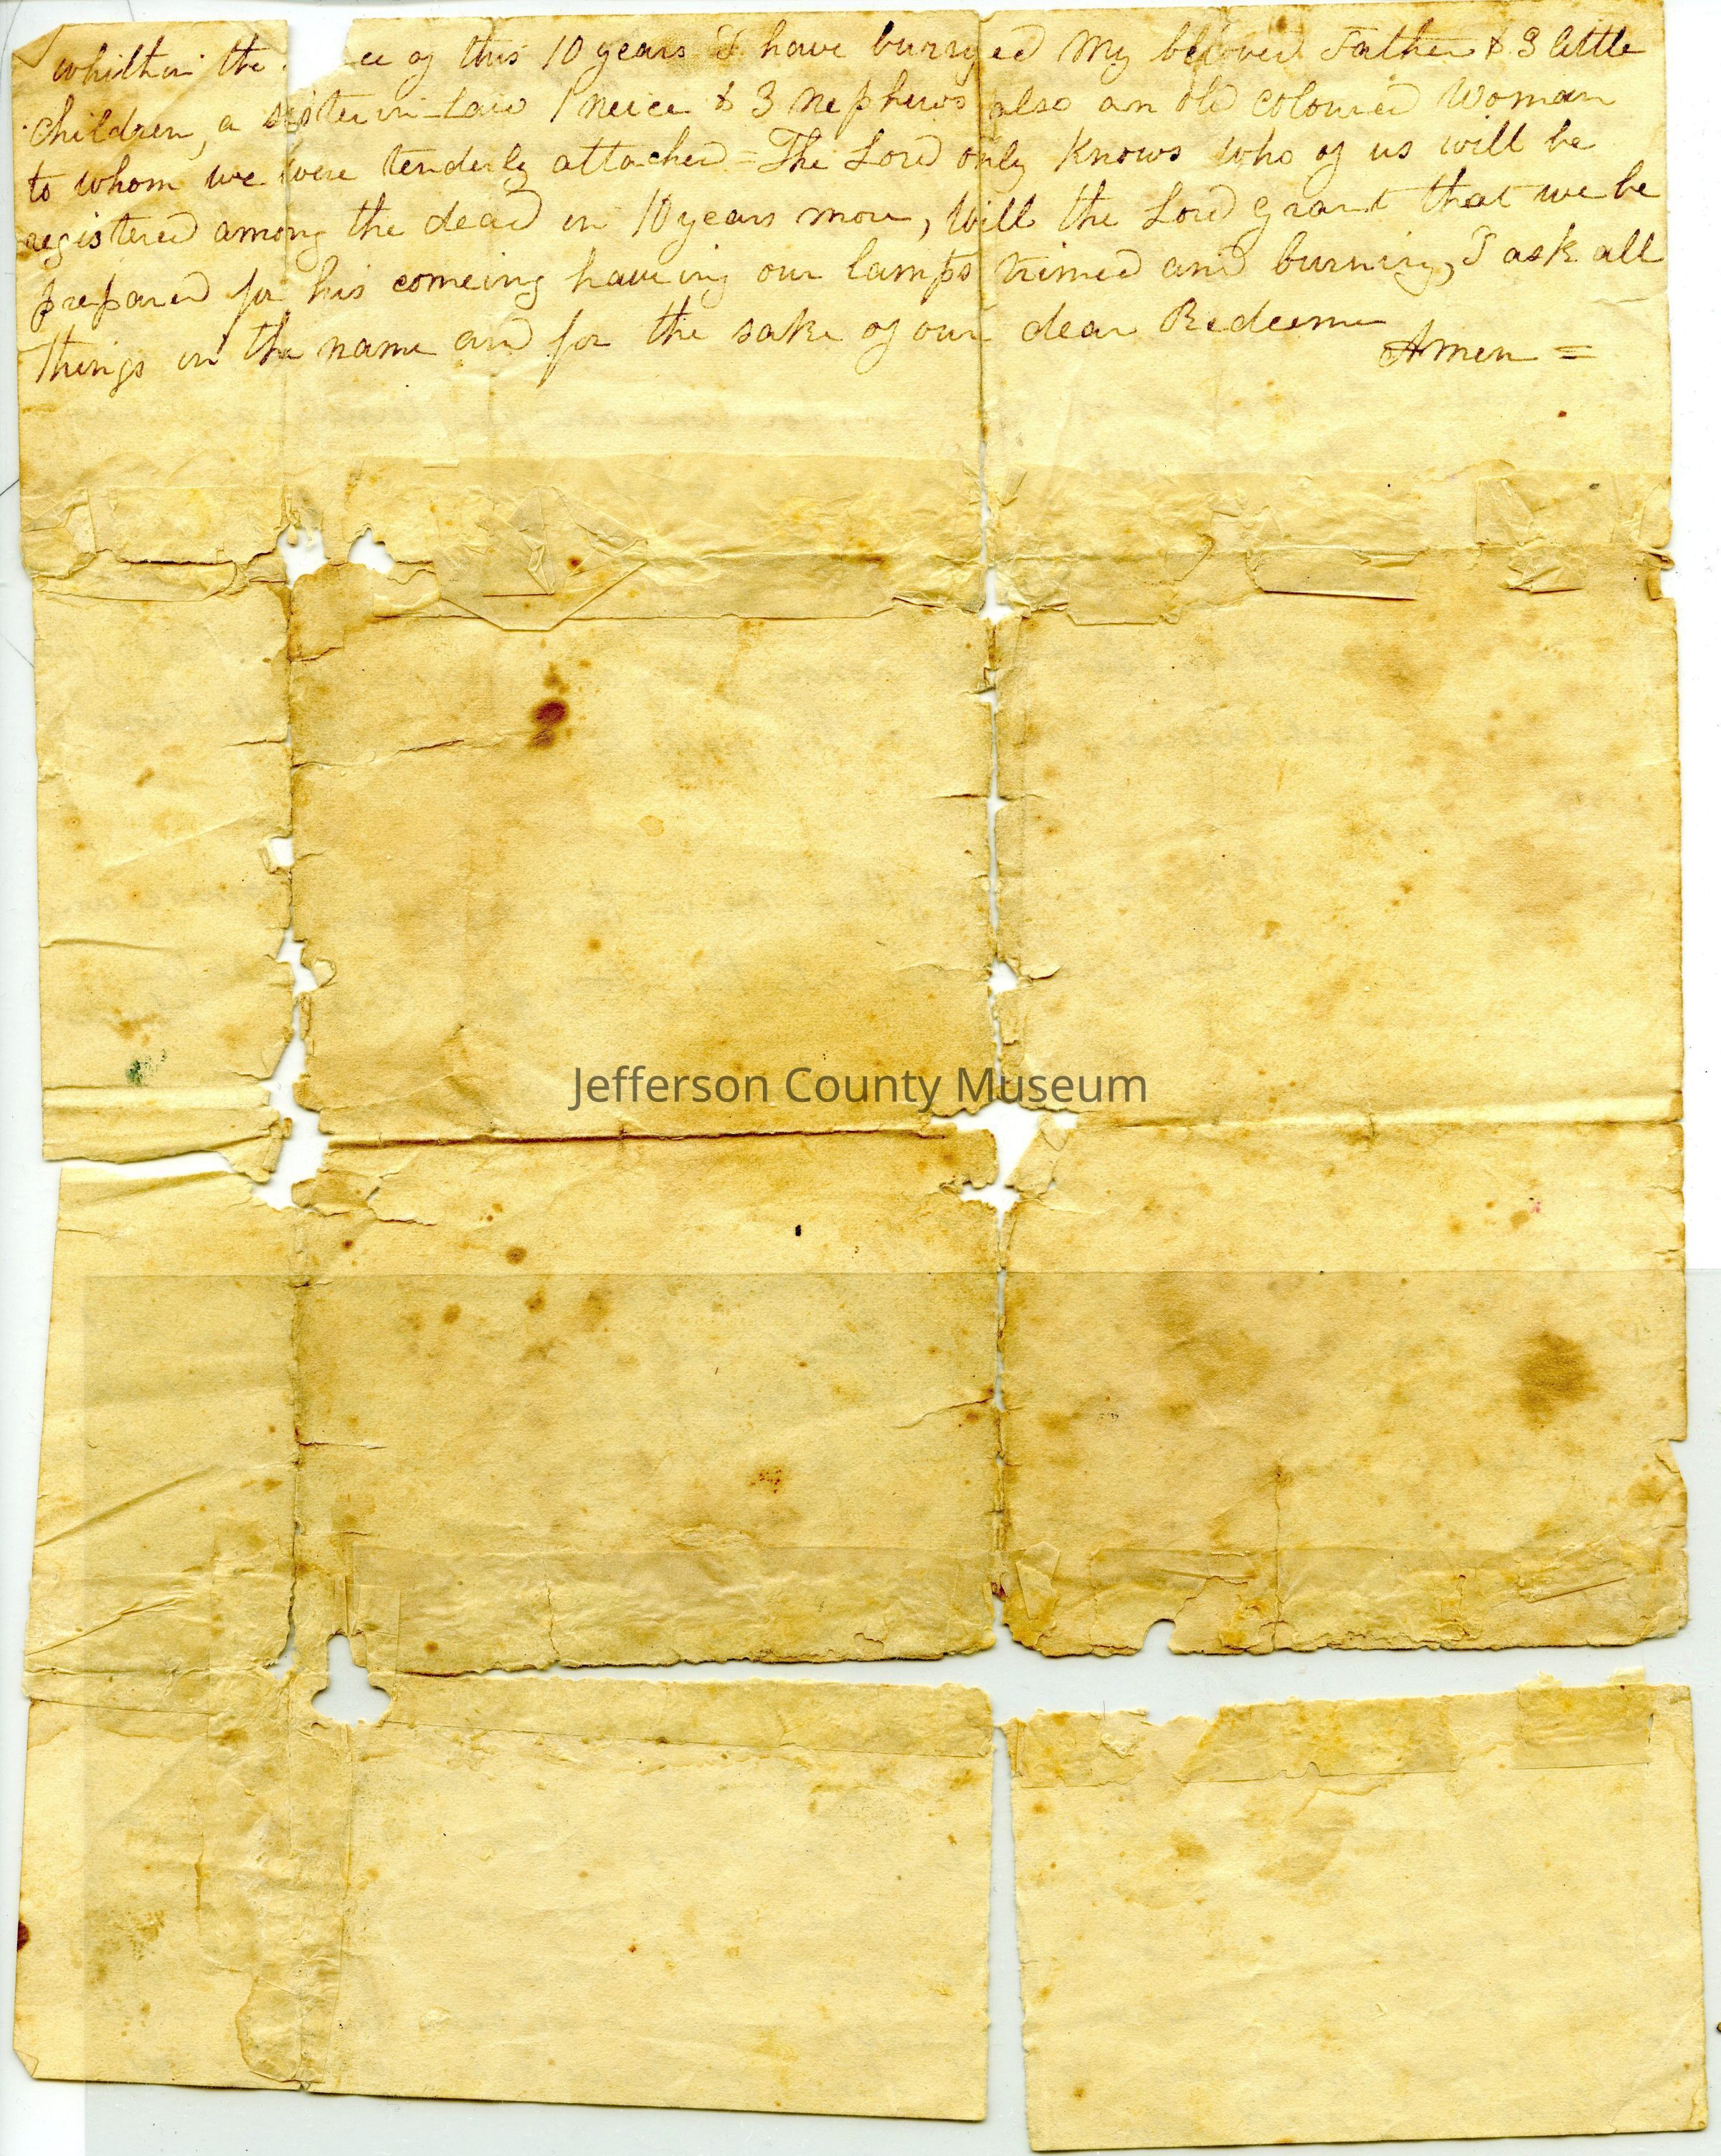 whilthin the ce of this 10 years I have burryed My beloved Father & 3 little
children, a sister in-law 1 neice & 3 nephews also an old coloured Woman
to whom we were tenderly attached = The Lord only knows who of us will be
registered among the dead in 10 years more, Will the Lord grant that we be
prepared for his comeing haveing our lamps trimed and burning, I ask all
things in the name and for the sake of our dear Redeemer
Amen =
Jefferson County Museum